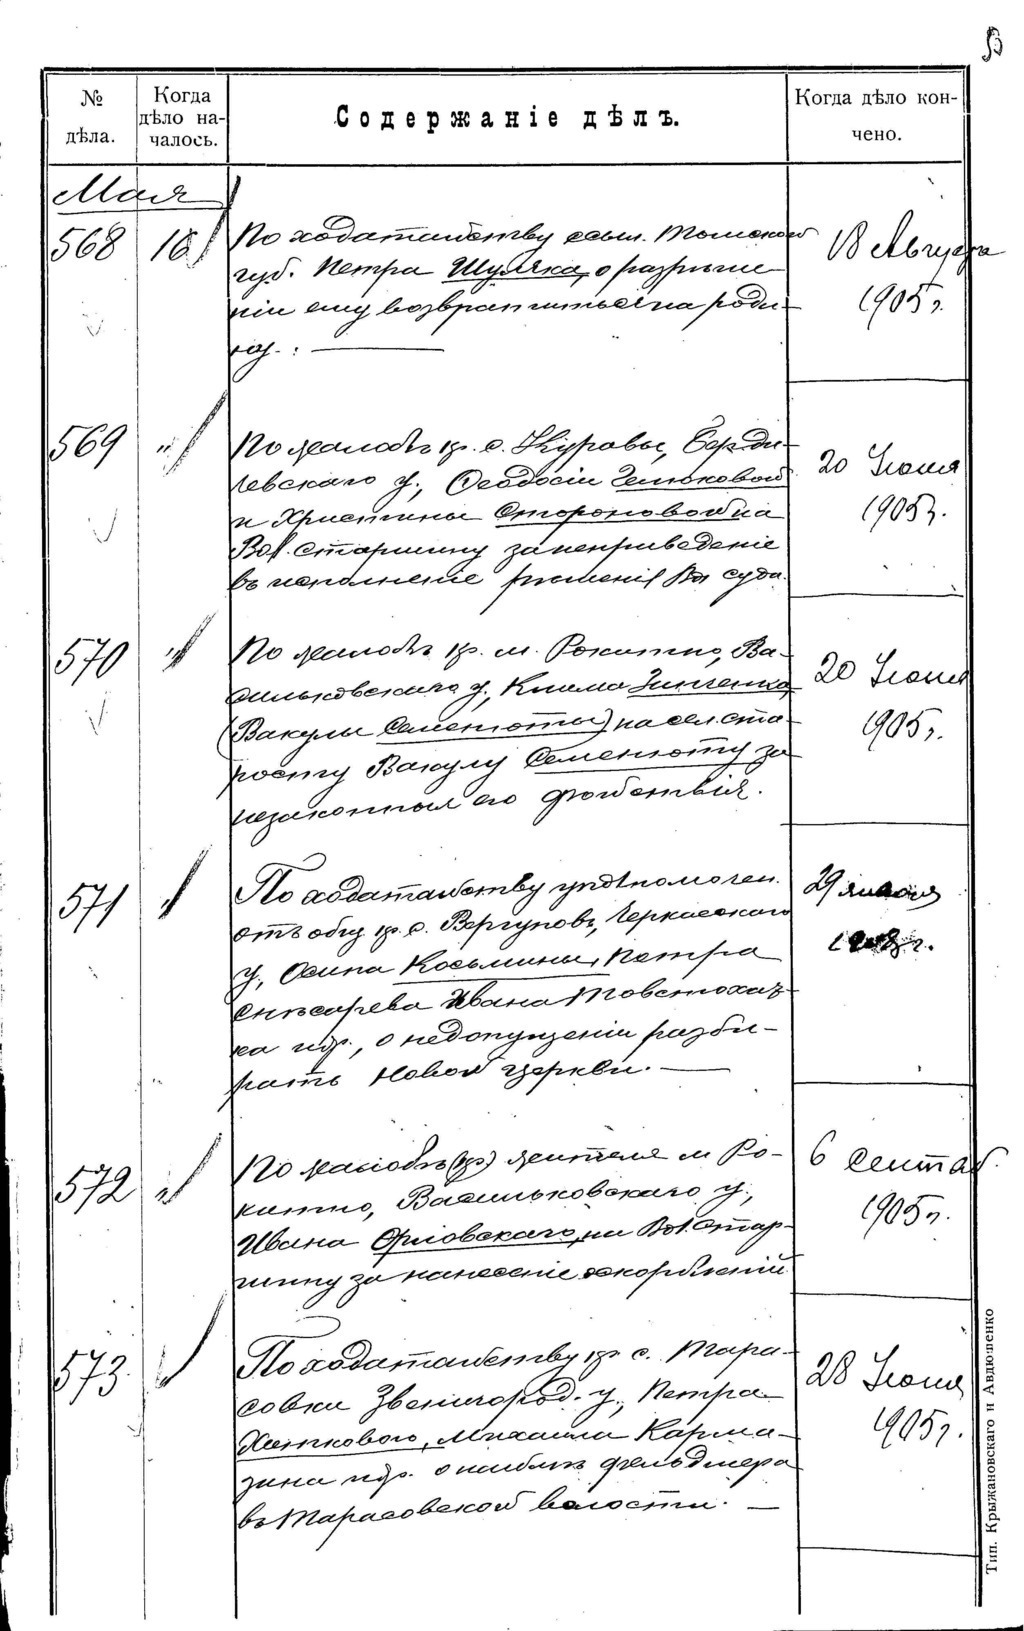 № дѣла.
Когда дѣло началось.
Содержаніе дѣлъ.
Когда дѣло кончено.
Мая
568
16
По ходатайству ссыл. Томской
губ. Петра Шуляка, о разрѣше-
ніи ему возвратиться на роди-
ну. :
18 Августа
1905 г.
569
"
По жалобѣ кр. с. Журовы, Берди-
чевскаго у., Ѳеодосіи
и Христины на
Вол. Старшину за неприведеніе
въ исполненіе рѣшенія Вол суда.
20 Іюня
1905 г.
570
"
По жалобѣ кр. м. Рокитно, Ва-
сильковскаго у., Клима Зинченко
(Вакулы Семенюты) на сел. ста-
росту Вакулу Семенюту за
незаконныя его дѣйствія.
20 Іюня
1905 г.
571
"
По ходатайству уполномочен.
отъ общ. кр. с. Вергуновъ, Черкасскаго
у., Осипа Козьмина, Петра
Слѣсарева Ивана
ка и др., о недопущеніи разби-
рать новой церкви.
29 января
г.
572
"
По жалобѣ (кр.) жителя м Ро-
китно, Васильковскаго у.,
Ивана Орловскаго, на Вол. Стар-
шину за нанесеніе оскорбленій
6 Сентяб.
1905 г.
573.
"
По ходатайству кр с. Тара-
совки Звенигород. у., Петра
Хиткового, Михаила Карма-
зина и др. о наймѣ фельдшера
въ Тарасовской волости.
28 Іюня
1905 г.
Тип. Крыжановскаго и Авдюшенко